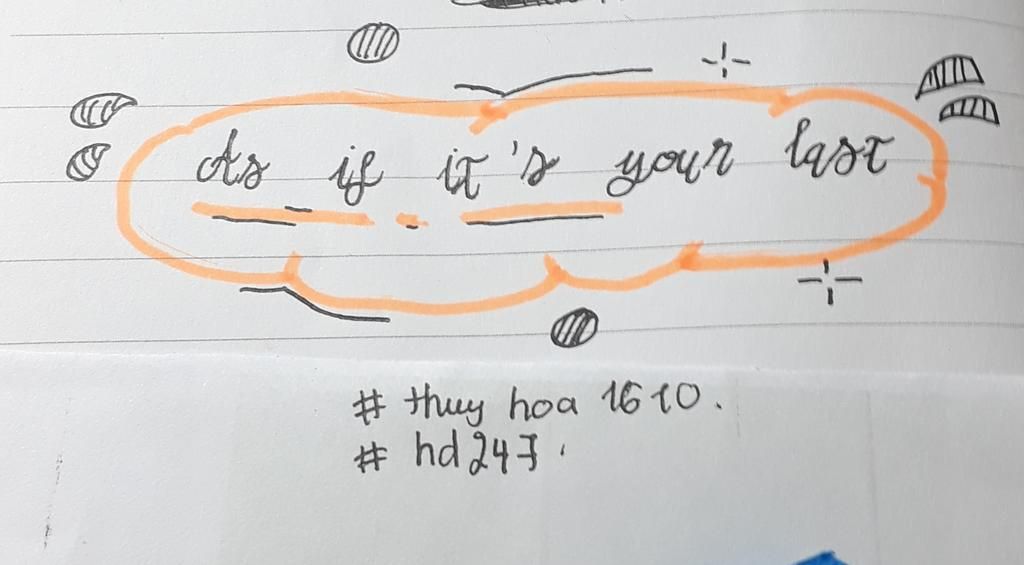 As if it's your last
# thuy hoa 1610.
# hd247.